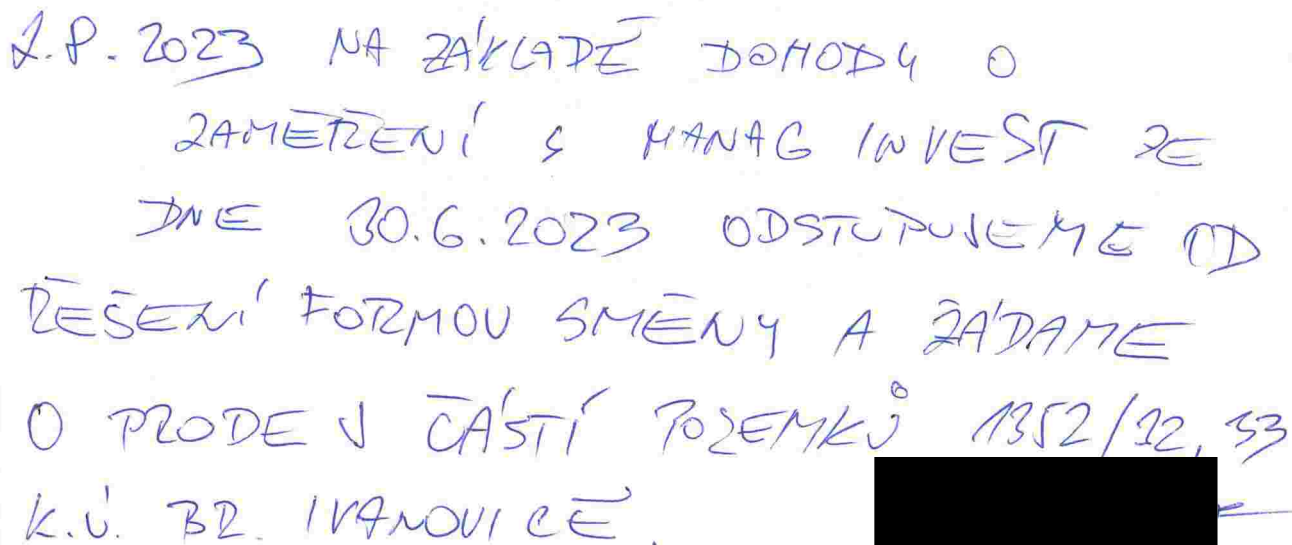 2.8.2023 NA ZÁKLADĚ DOHODY O
ZAMĚŘENÍ S MANAG INVEST ZE
DNE 30.6.2023 ODSTUPUJEME OD
ŘEŠENÍ FORMOU SMĚNY A ŽÁDAME
O PRODEJ ČÁSTÍ POZEMKŮ 1352/32, 33
K.Ú. BR. IVANOVICE.